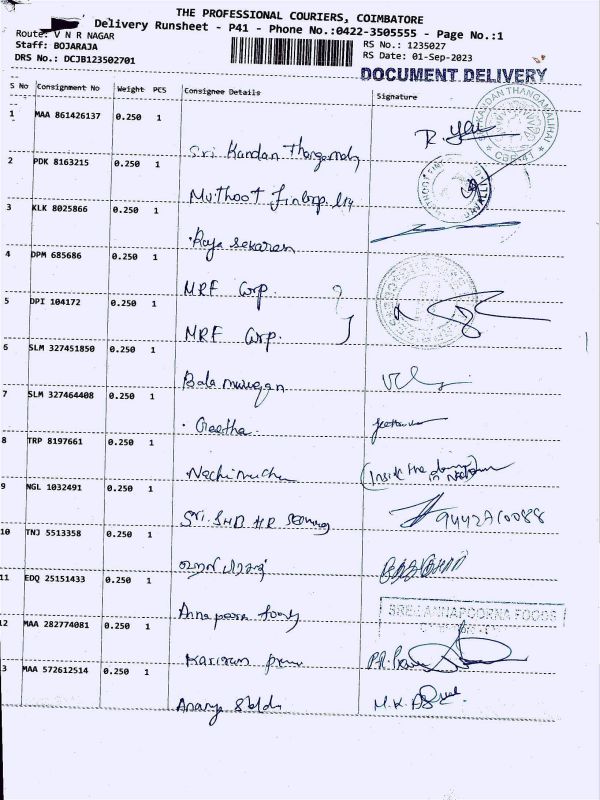 THE PROFESSIONAL COURIERS, COIMBATORE
Delivery Runsheet - P41 - Phone No.:0422-3505555 - Page No.:1
Route: V N R NAGAR
Staff: BOJARAJA
DRS No.: DCJB123502701
RS No.: 1235027
RS Date: 01-Sep-2023
DOCUMENT DELIVERY
S No Consignment No Weight PCS Consignee Details Signature
1 MAA 861426137 0.250 1
Sri Kandan Thangamaly
2 PDK 8163215 0.250 1
Muthoot Fincorp
3 KLK 8025866 0.250 1
Raja Sekaran
4 DPM 685686 0.250 1
MRF Corp
5 DPI 104172 0.250 1
MRF Corp.
6 SLM 327451850 0.250 1
Bala murugan
7 SLM 327464408 0.250 1
Geetha
8 TRP 8197661 0.250 1
Nachimuthu (Inside the
9 NGL 1032491 0.250 1
Sri. SHD HR
10 TNJ 5513358 0.250 1
11 EDQ 25151433 0.250 1
Annapoorna foods SREE ANNAPOORNA FOODS
12 MAA 282774081 0.250 1
3 MAA 572612514 0.250 1
Ananya M.K.